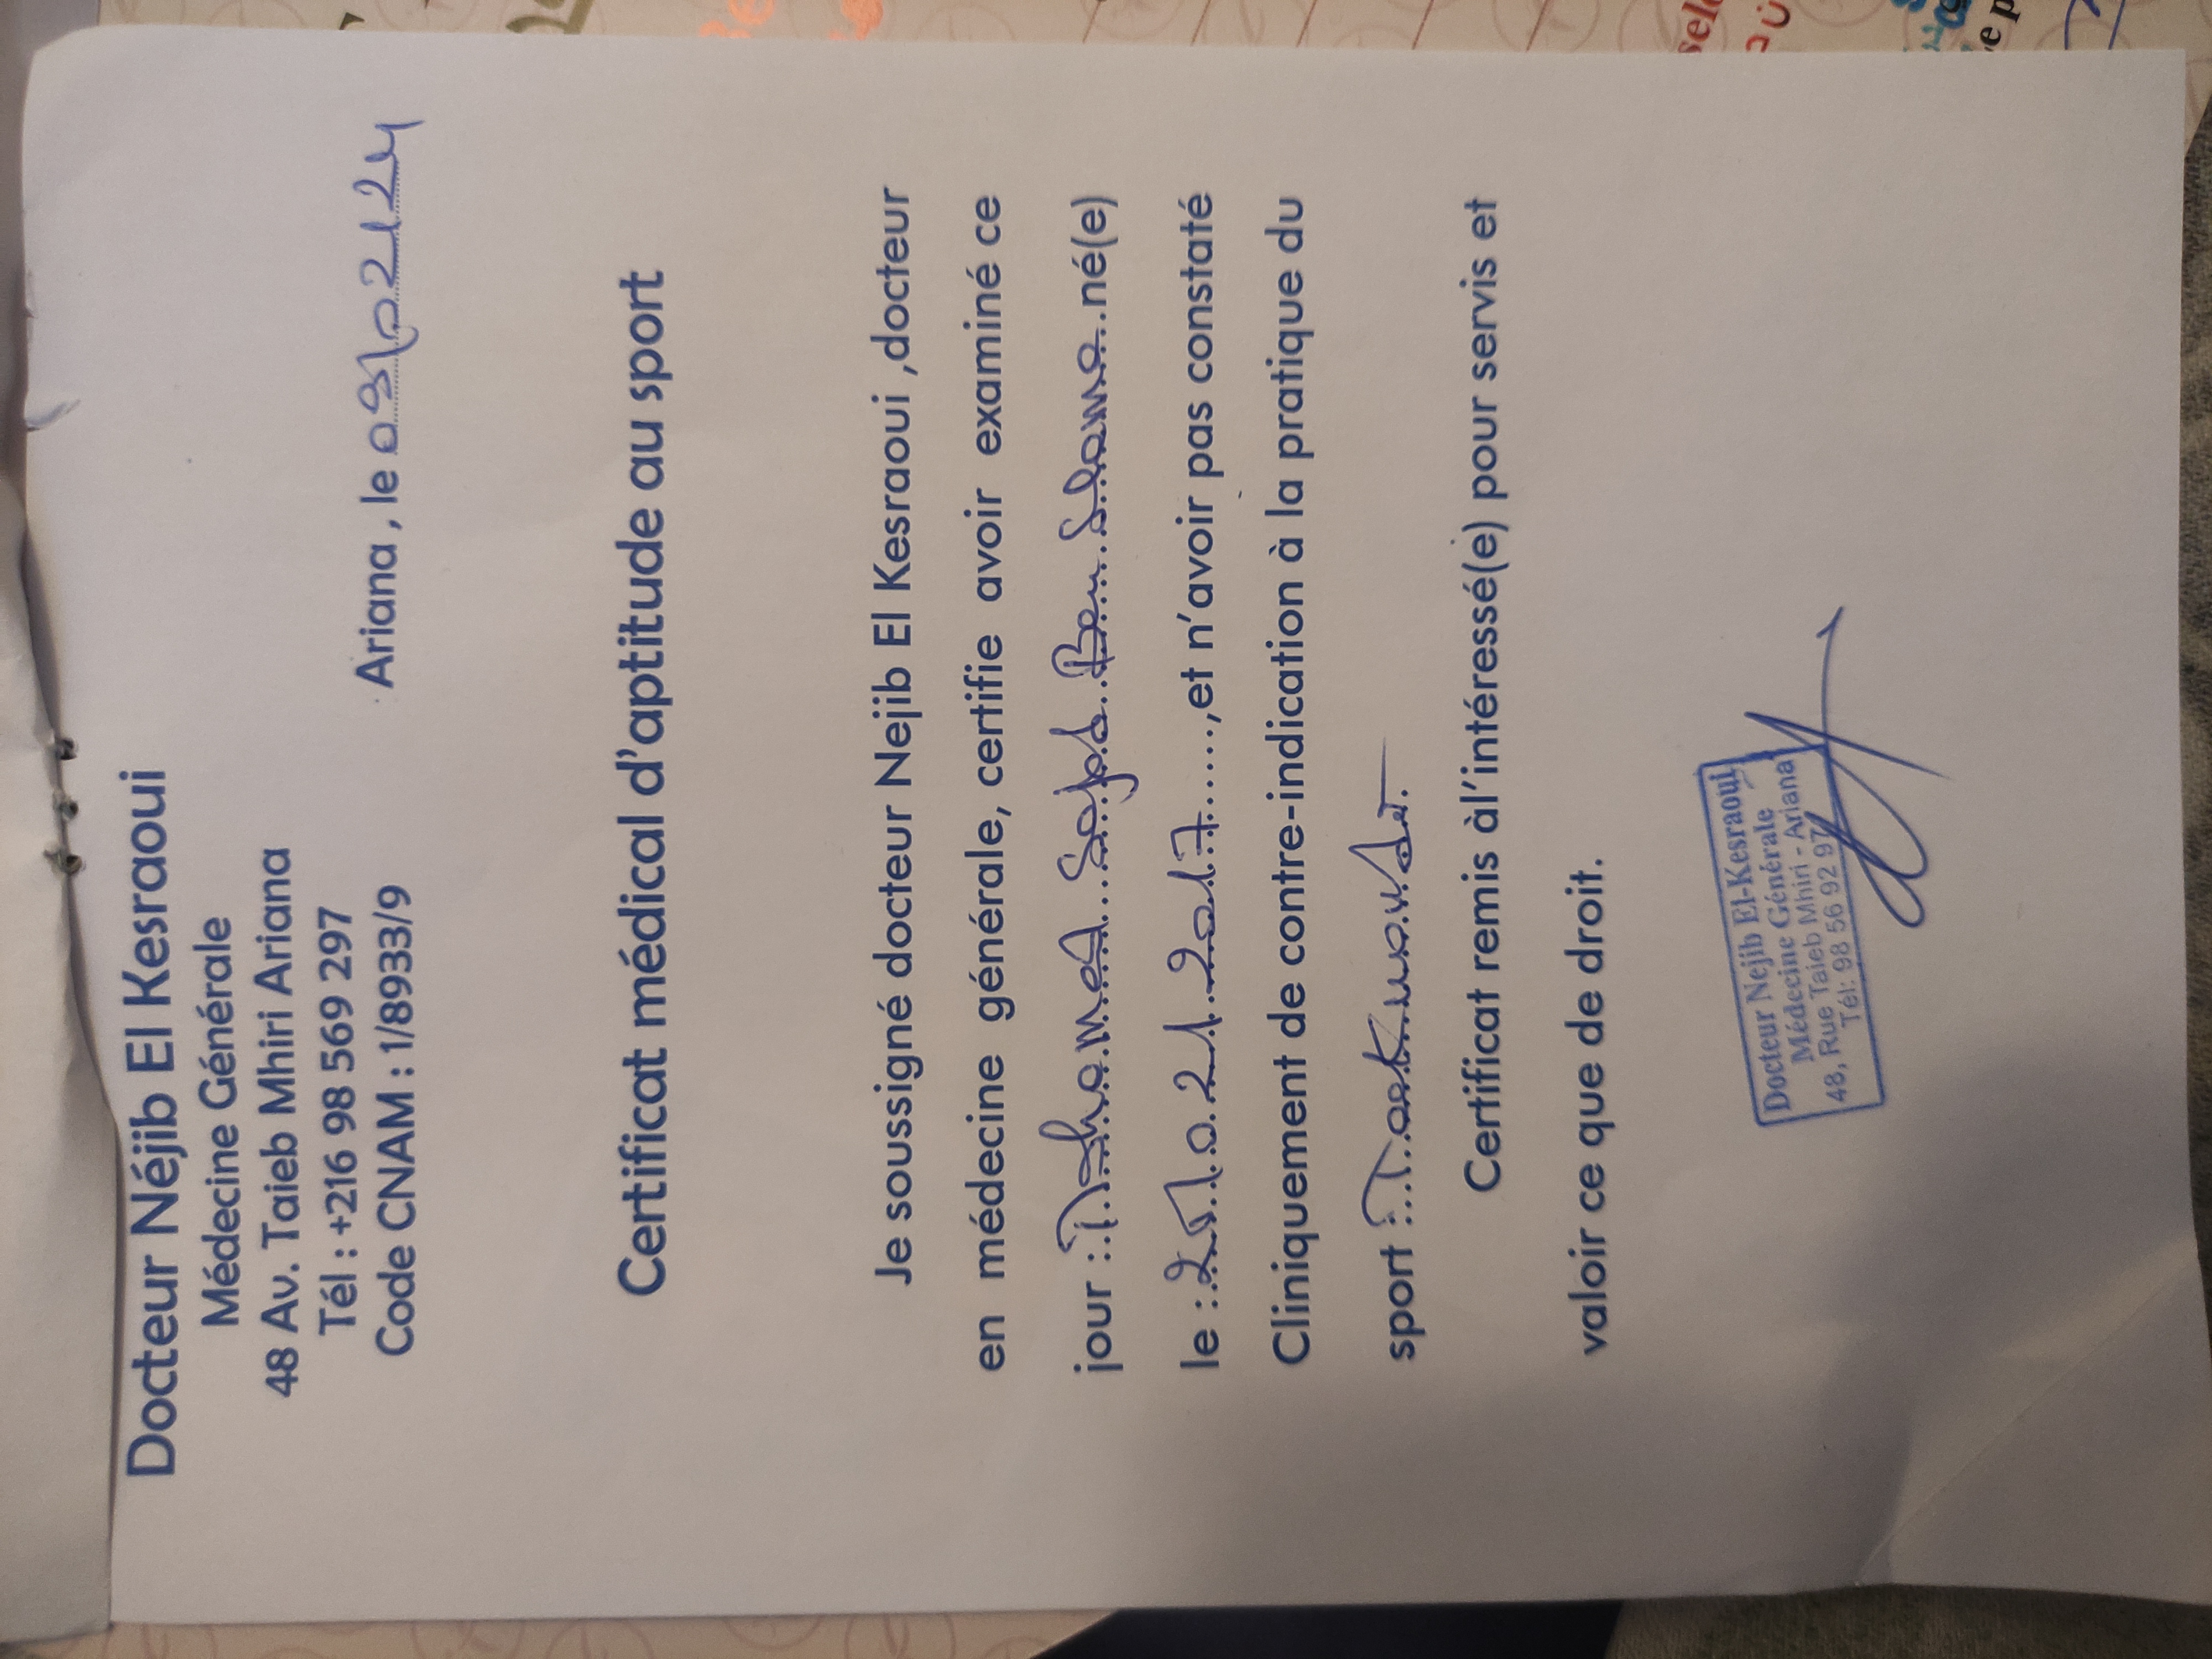 Docteur Néjib El Kesraoui
Médecine Générale
48 Av. Taieb Mhiri Ariana
Tél : +216 98 569 297
Code CNAM : 1/8933/9
Ariana , le 09/02/24
Certificat médical d'aptitude au sport
Je soussigné docteur Nejib El Kesraoui ,docteur
en médecine générale, certifie avoir examiné ce
jour : Mohamed Sajed Ben Slama né(e)
le : 25/02/2017......,et n'avoir pas constaté
Cliniquement de contre-indication à la pratique du
sport : Taekwondo
Certificat remis àl'intéressé(e) pour servis et
valoir ce que de droit.
Docteur Nejib El-Kesraoui
Médecine Générale
48, Rue Taieb Mhiri - Ariana
Tél: 98 56 92 97